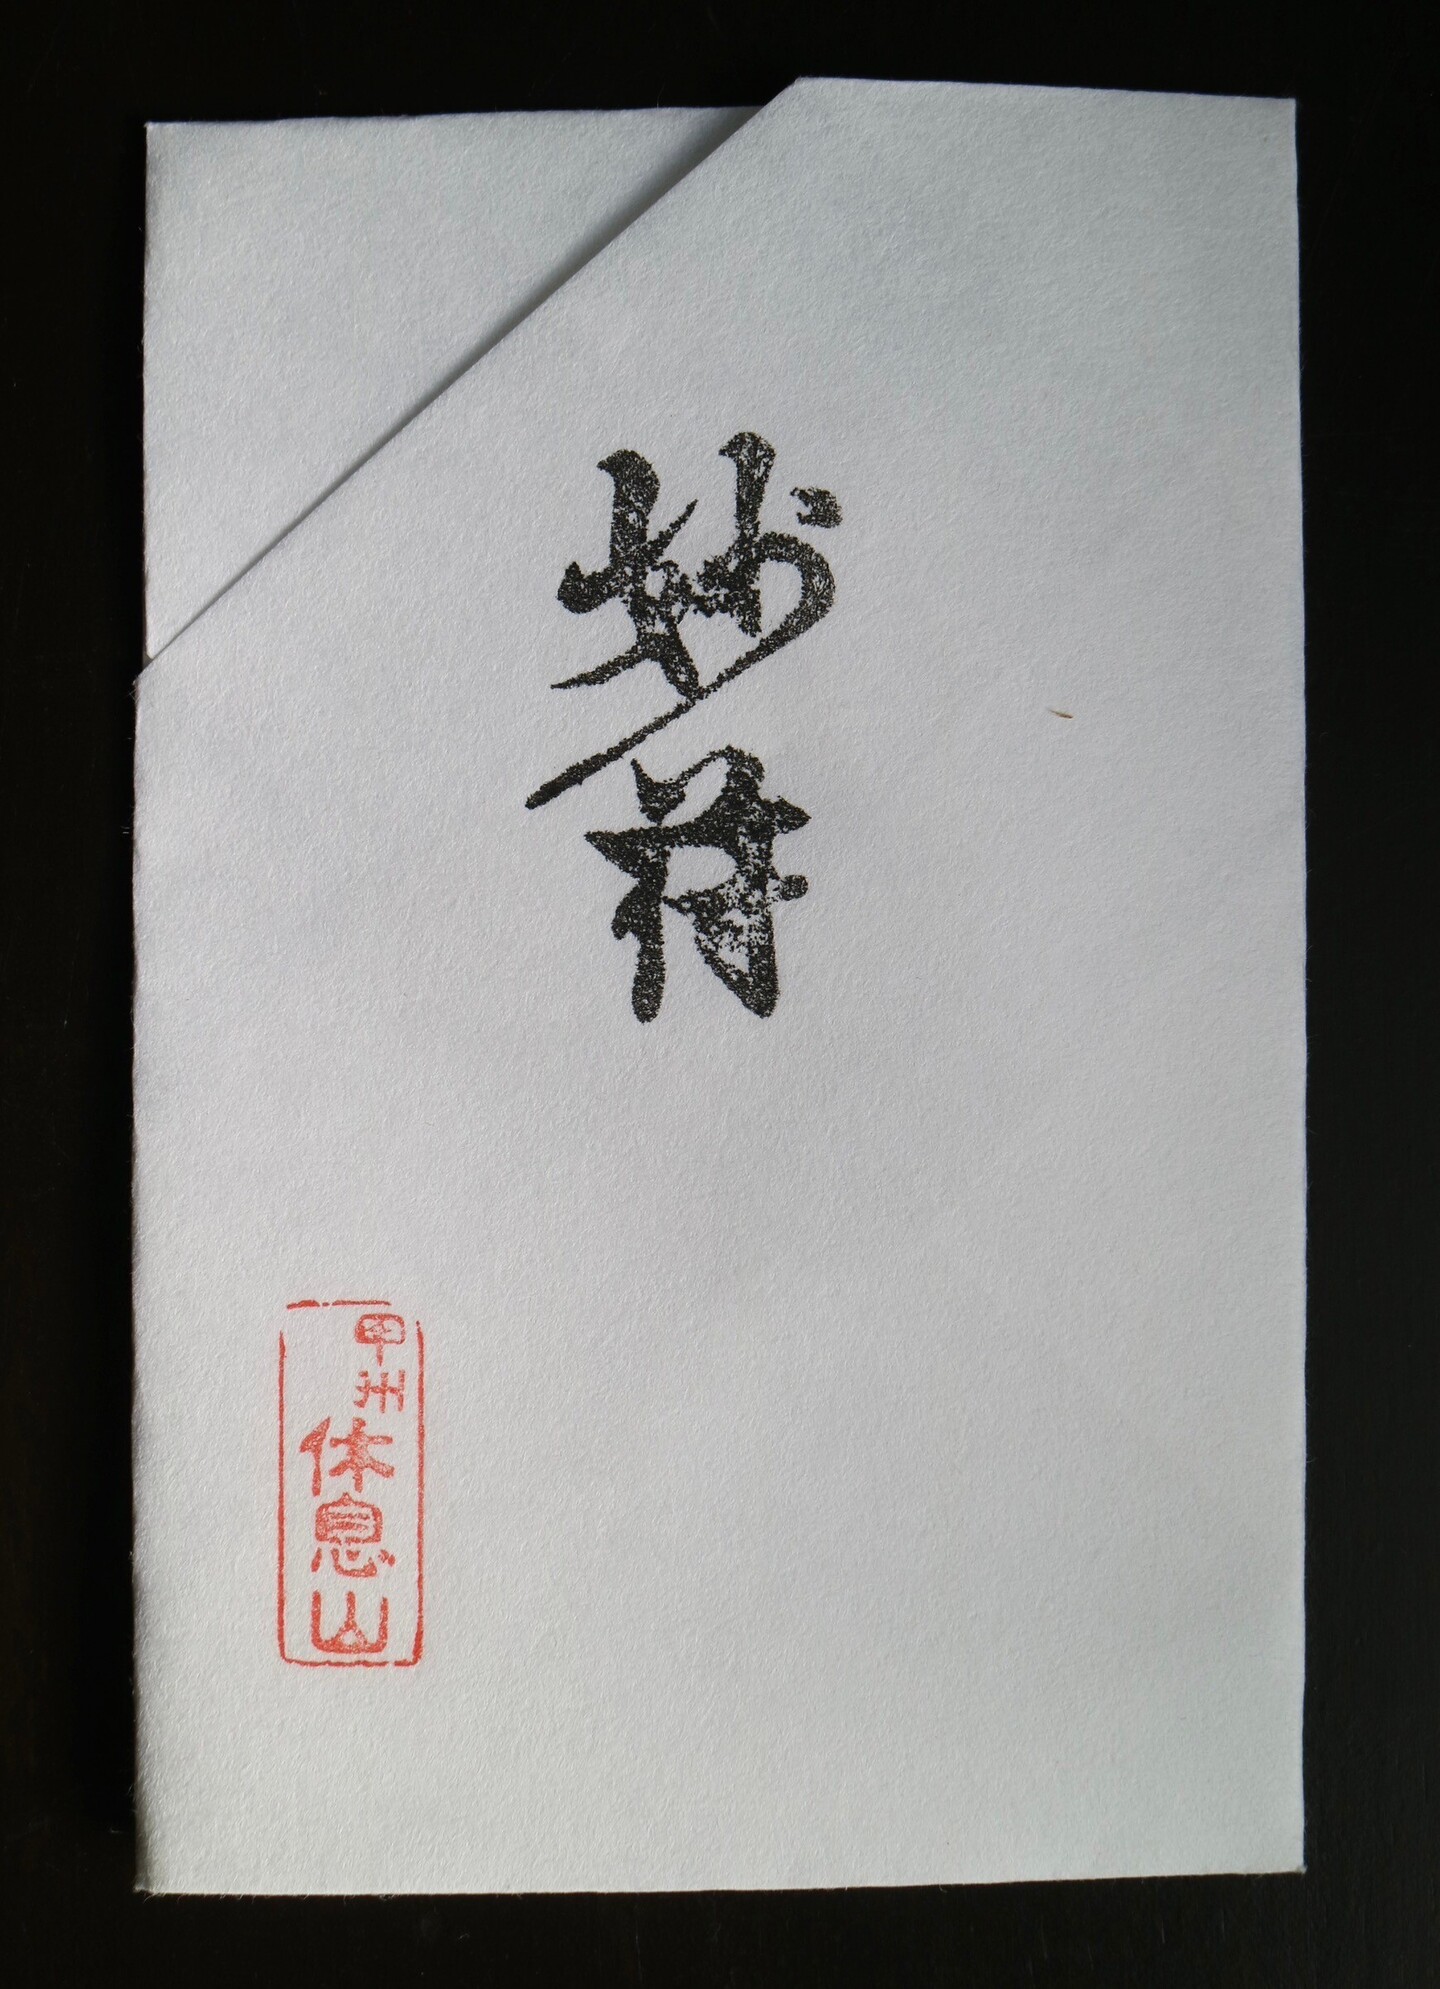 妙符
甲州
休息山